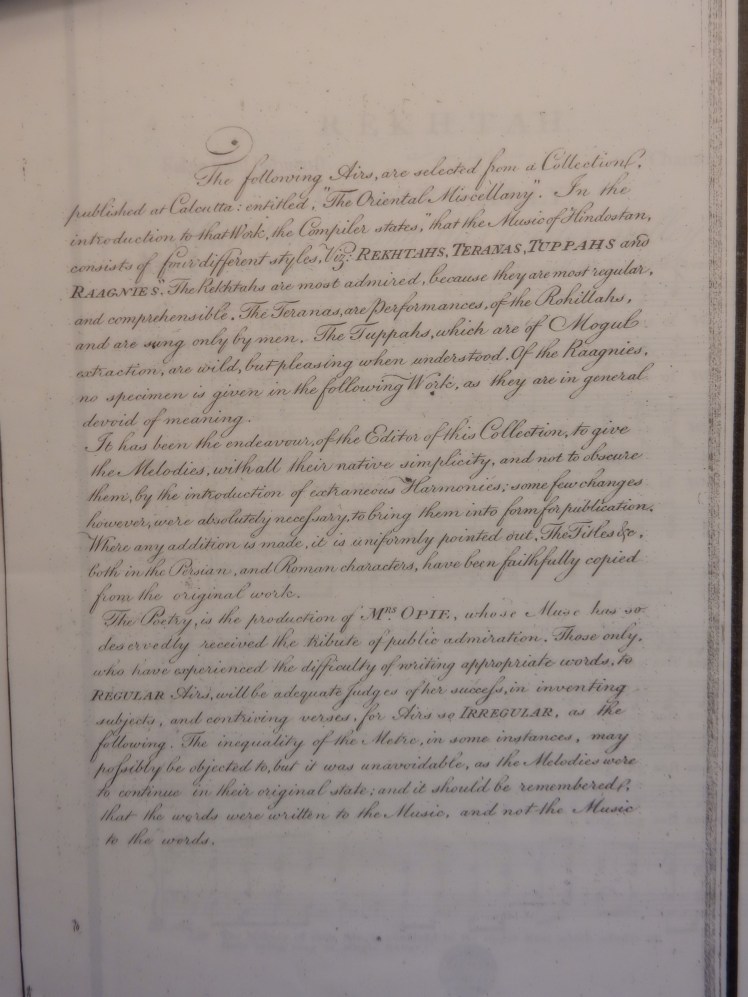 The following Airs, are selected from a Collection,
published at Calcutta: entitled, "The Oriental Miscellany". In the
introduction to that Work, the Compiler states, "that the Music of Hindostan,
consists of four different styles, Viz: REKHTAHS, TERANAS, TUPPAHS and
RAAGNIES". The Rekhtahs are most admired, because they are most regular,
and comprehensible. The Teranas, are Performances, of the Rohillahs,
and are sung only by men. The Tuppahs, which are of Mogul
extraction, are wild, but pleasing when understood. Of the Raagnies,
no specimen is given in the following Work, as they are in general
devoid of meaning.
It has been the endeavour, of the Editor of this Collection, to give
the Melodies, with all their native simplicity, and not to obscure
them, by the introduction of extraneous Harmonies; some few changes
however, were absolutely necessary, to bring them into form for publication.
Where any addition is made, it is uniformly pointed out. The Titles &c.
both in the Persian, and Roman characters, have been faithfully copied
from the original work.
The Poetry, is the production of Mrs. OPIE, whose Muse has so
deservedly received the tribute of public admiration. Those only,
who have experienced the difficulty of writing appropriate words, to
REGULAR Airs, will be adequate judges of her success, in inventing
subjects, and contriving verses, for Airs so IRREGULAR, as the
following. The inequality of the Metre, in some instances, may
possibly be objected to, but it was unavoidable, as the Melodies were
to continue in their original state; and it should be remembered,
that the words were written to the Music, and not the Music
to the words.